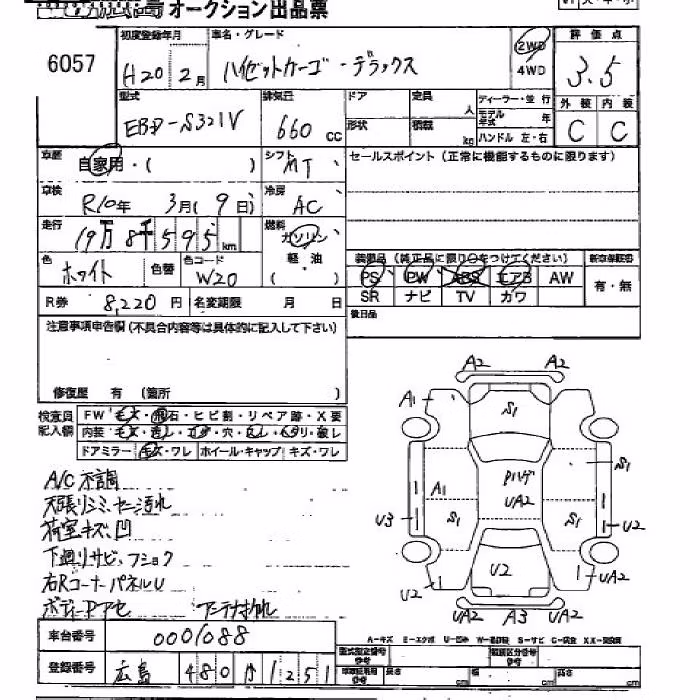 オークション出品票
6057
初度登録年月
H20 2月
車名・グレード
ハイゼットカーゴ・デラックス
2WD
4WD
評価点
3.5
外装 内装
C C
型式
EBD-S321V
排気量
660 cc
ドア
形状
定員 人
積載 kg
ディーラー・並行
モデル年式 年
ハンドル 左・右
車歴
自家用・( )
シフト
MT
セールスポイント(正常に機能するものに限ります)
車検
R10年 3月(9日)
冷房
AC
走行
19万8千595km
燃料
ガソリン
軽・油
( )
色
ホワイト
色替
色コード
W20
装備品(純正品に限り○をつけてください)
新車保証書
PS PW ABS エアB AW
有・無
SR ナビ TV カワ
R券 8,220円
名変期限 月 日
後日品
注意事項申告欄(不具合内容等は具体的に記入して下さい)
修復歴 有 (箇所 )
検査員記入欄
FW キズ・飛石・ヒビ割・リペア跡・X要
内装
ドアミラー キズ・ワレ ホイール・キャップ キズ・ワレ
A/C不調
天張リシミ、セーン汚れ
荷室キズ、凹
下廻リサビ、フショク
右RコーナーパネルU
ボディーPアセ アンテナ折れ
A2 A2
A1 S1
S1
Pハゲ
A1 UA2
U3 S1 S1 U2
U2
U2 UA2
UA2 A3 UA2
車台番号 0001088
登録番号 広島 480 か 1251
型式指定番号
参考
類別区分番号
参考
長さ cm
幅 cm
高さ cm